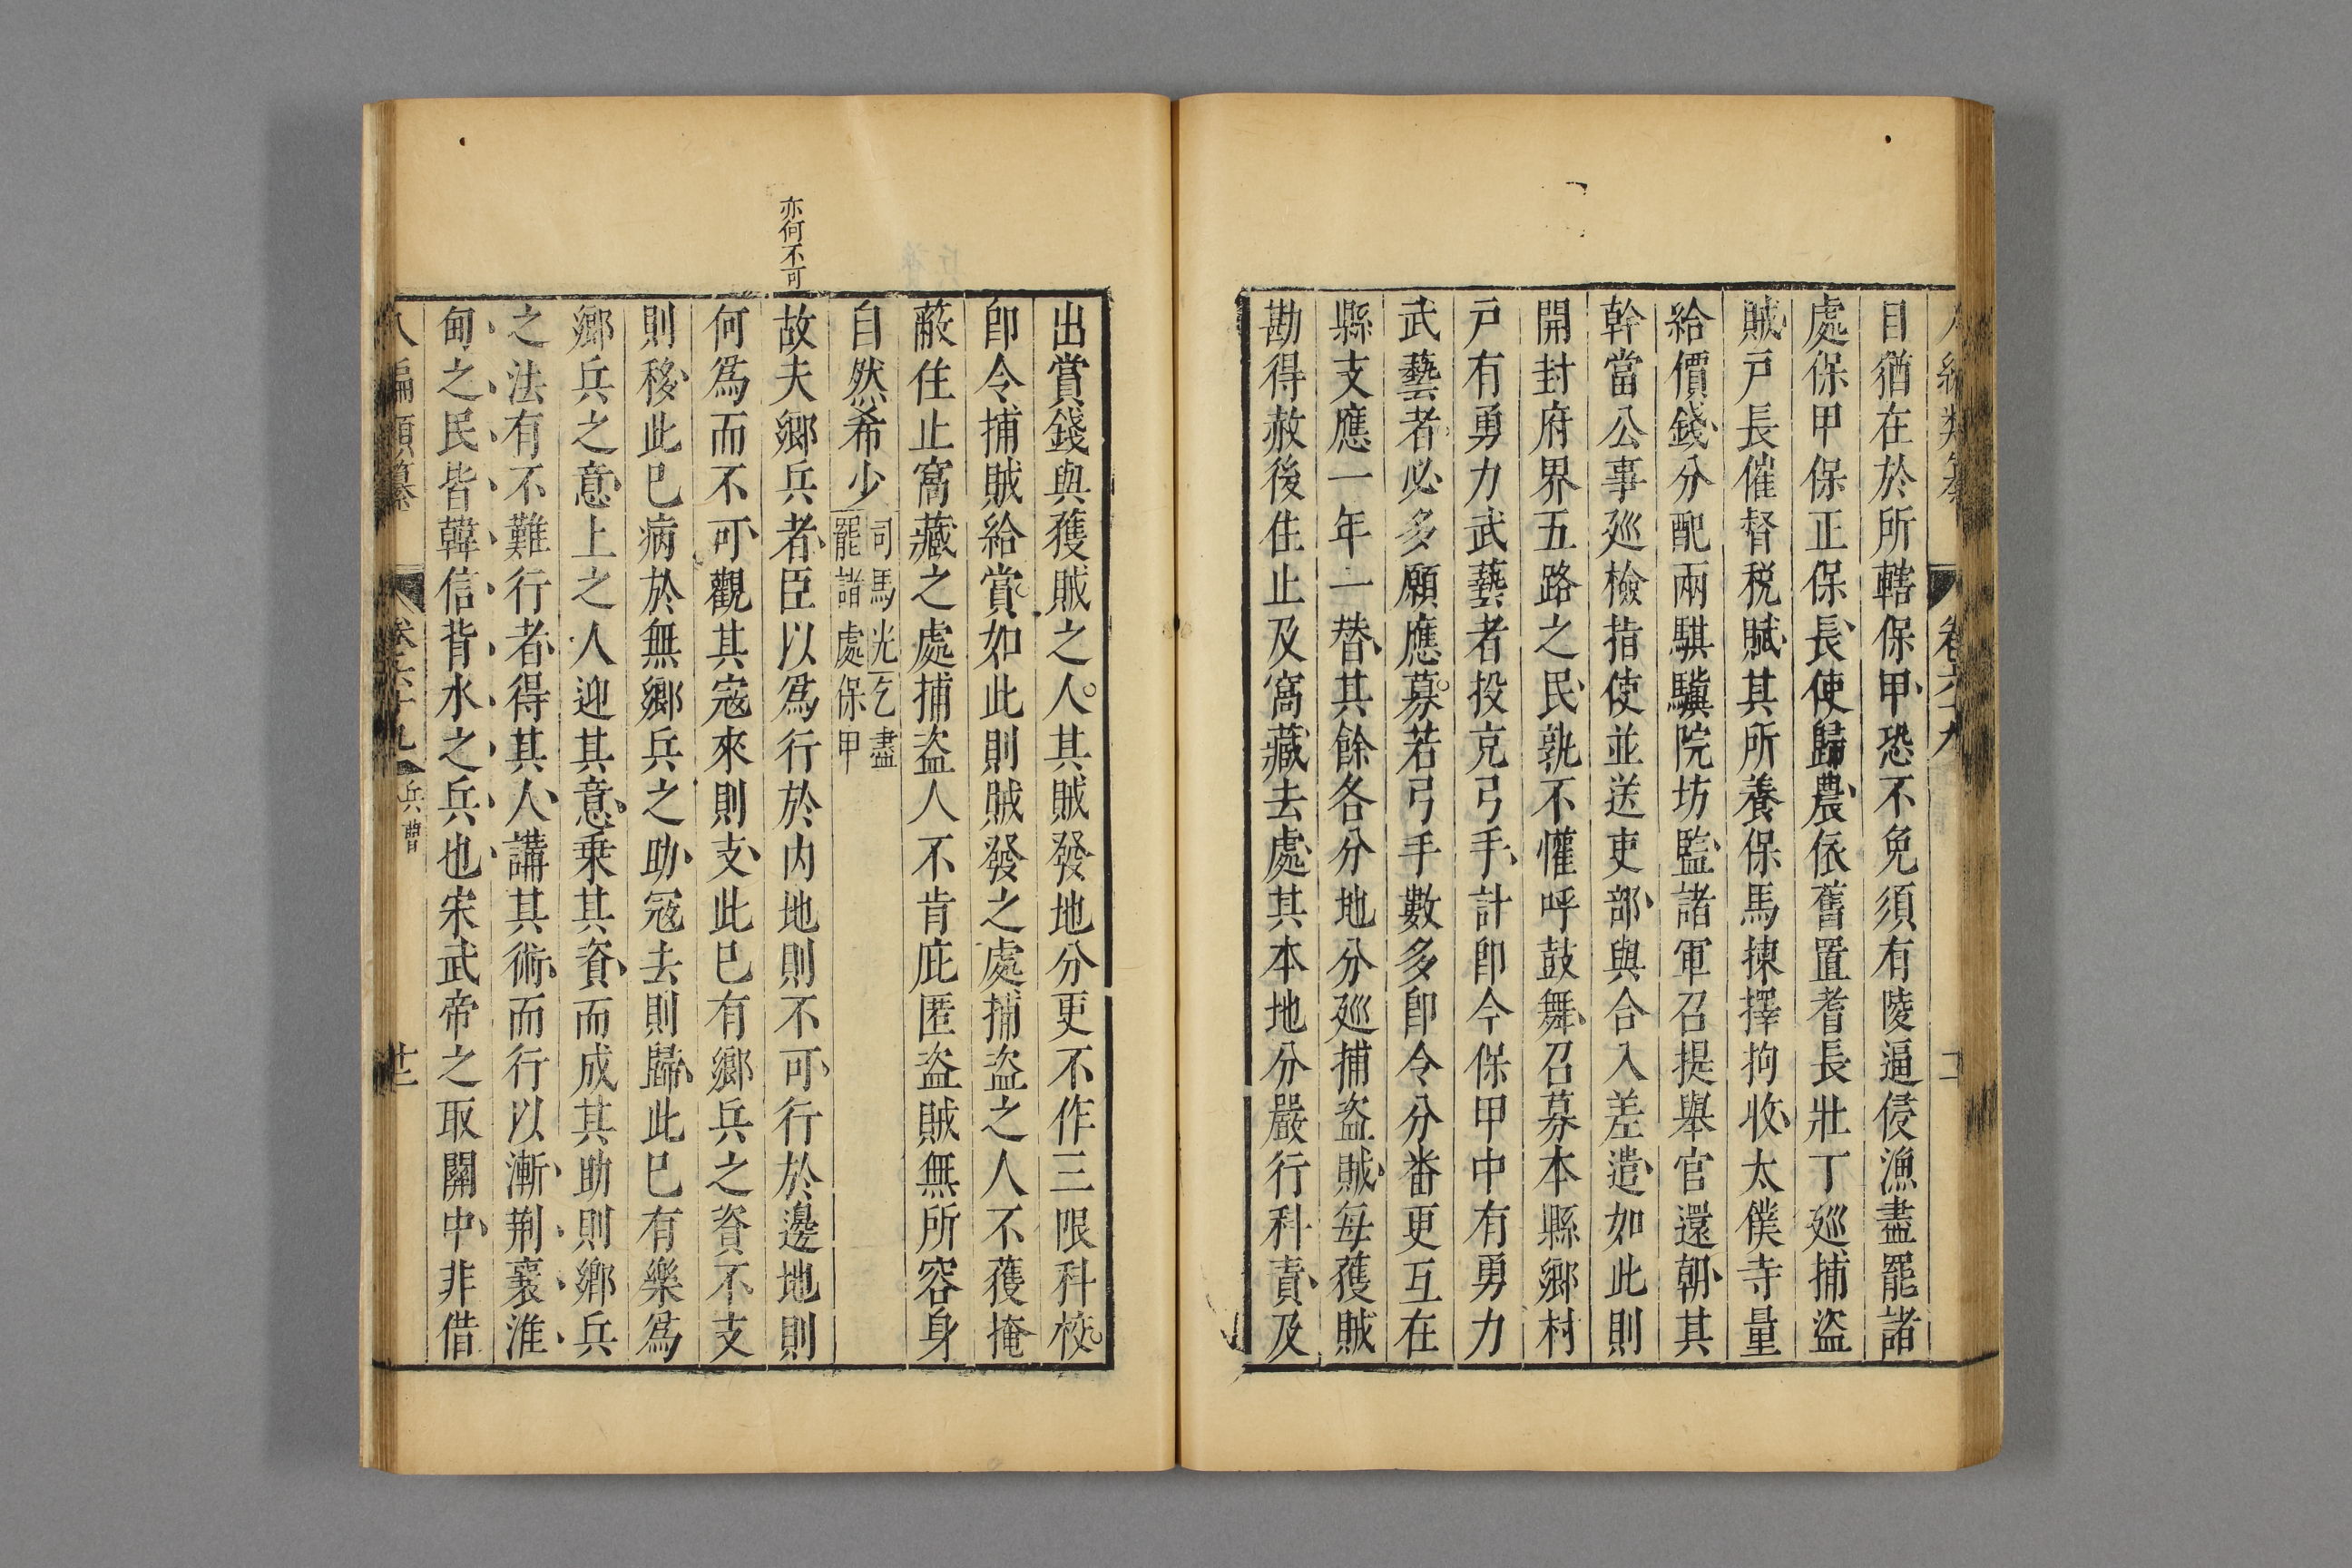 目猶在於所轄保甲恐不免須有陵逼侵漁盡罷諸
處保甲保正保長使歸農依舊置耆長壯丁廵捕盜
賊戸長催督税賦其所養保馬揀擇拘收太僕寺量
給價錢分配兩騏驥院坊監諸軍召提舉官還朝其
幹當公事廵檢指使並送吏部與合入差遣如此則
開封府界五路之民孰不懽呼鼓舞召募本縣鄉村
戸有勇力武藝者投充弓手計即今保甲中有勇力
武藝者必多願應募若弓手數多即令分番更互在
縣支應一年一替其餘各分地分廵捕盜賊每獲賊
勘得赦後住止及窩藏去處其本地分嚴行科責及
出賞錢與獲賊之人其賊發地分更不作三限科校
即令捕賊給賞如此則賊發之處捕盜之人不獲掩
蔽住止窩藏之處捕盜人不肯庇匿盜賊無所容身
自然希少司馬光乞盡罷諸處保甲
亦何不可
故夫鄉兵者臣以爲行於内地則不可行於邊地則
何爲而不可觀其寇來則支此已有鄉兵之資不支
則移此已病於無鄉兵之助寇去則歸此已有樂爲
鄉兵之意上之人迎其意乗其資而成其助則鄉兵
之法有不難行者得其人講其術而行以漸荆襄淮
甸之民皆韓信背水之兵也宋武帝之取關中非借
八編類纂 卷六十九 兵曹 十二